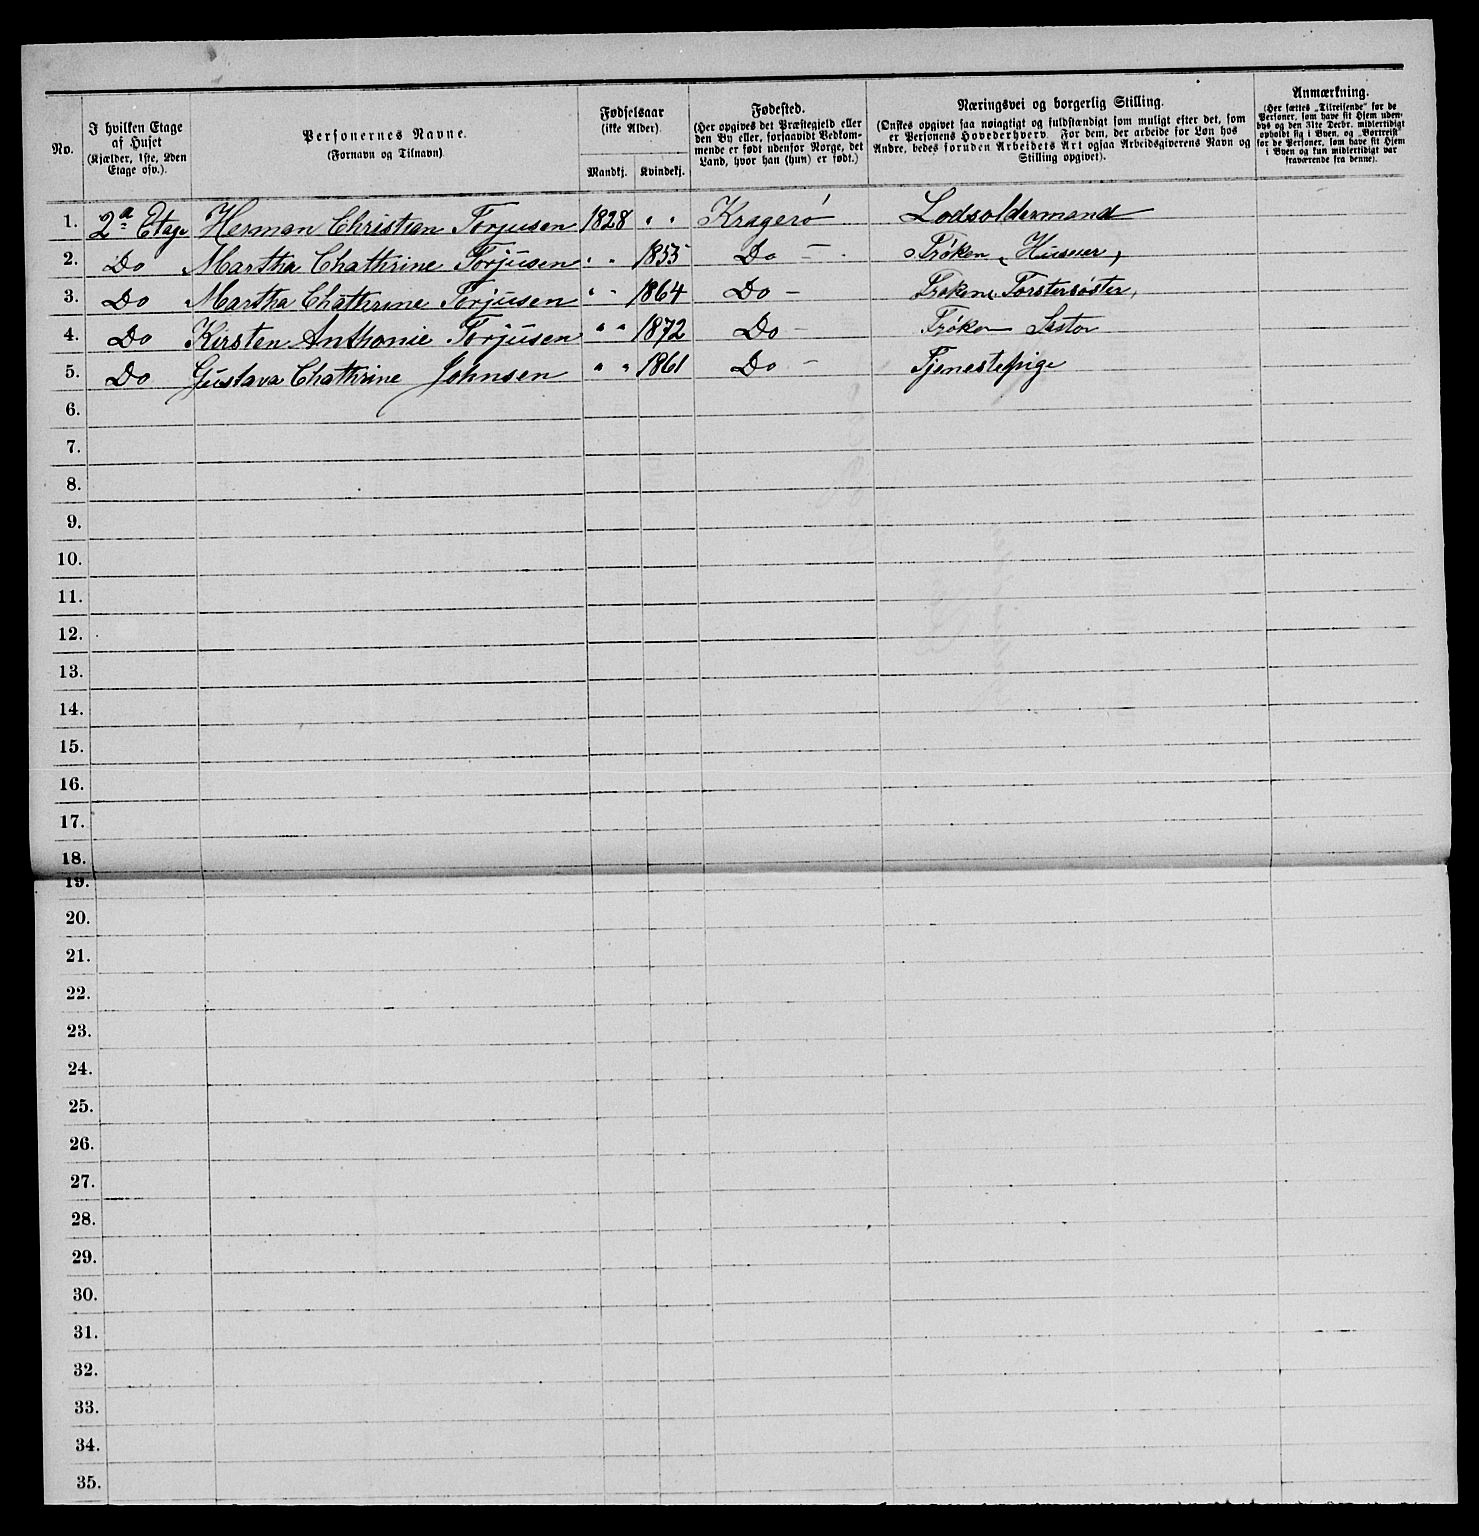 No.
I hvilken Etage
af Huset
(Kjælder, 1ste, 2den
Etage osv.).
Personernes Navne.
(Fornavn og Tilnavn)
Fødselsaar
(ikke Alder).
Mandkj. Kvindekj.
Fødested.
(Her opgives det Præstegjeld eller
den By eller, forsaavidt Vedkom-
mende er født udenfor Norge, det
Land, hvor han (hun) er født.)
Næringsvei og borgerlig Stilling.
(Ønskes opgivet saa nøiagtigt og fuldstændigt som muligt efter det, som
er Personens Hovederhverv. For dem, der arbeide for Løn hos
Andre, bedes foruden Arbeidets Art ogsaa Arbeidsgiverens Navn og
Stilling opgivet).
Anmærkning.
(Her sættes „Tilreisende" for de
Personer, som have sit Hjem uden-
bys og den 31te Decbr. midlertidigt
opholdt sig i Byen, og „Bortreist"
for de Personer, som have sit Hjem
i Byen og kun midlertidigt var
fraværende fra denne).
1. 2a Etage Herman Christian Torjusen 1828 " " Kragerö Lodsoldermand
2. Do Martha Chathrine Torjusen " " 1855 Do — Fröken,
3. Do Martha Chathrine Torjusen " " 1864 Do —
4. Do Kirsten Anthonie Torjusen " " 1872 Do — Fröken
5. Do Gustava Chathrine Johnsen " " 1861 Do — Tjenestepige
6.
7.
8.
9.
10.
11.
12.
13.
14.
15.
16.
17.
18.
19.
20.
21.
22.
23.
24.
25.
26.
27.
28.
29.
30.
31.
32.
33.
34.
35.